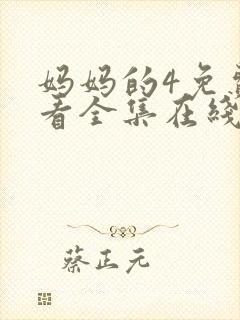 妈妈的4免
看全集在线
蔡正元